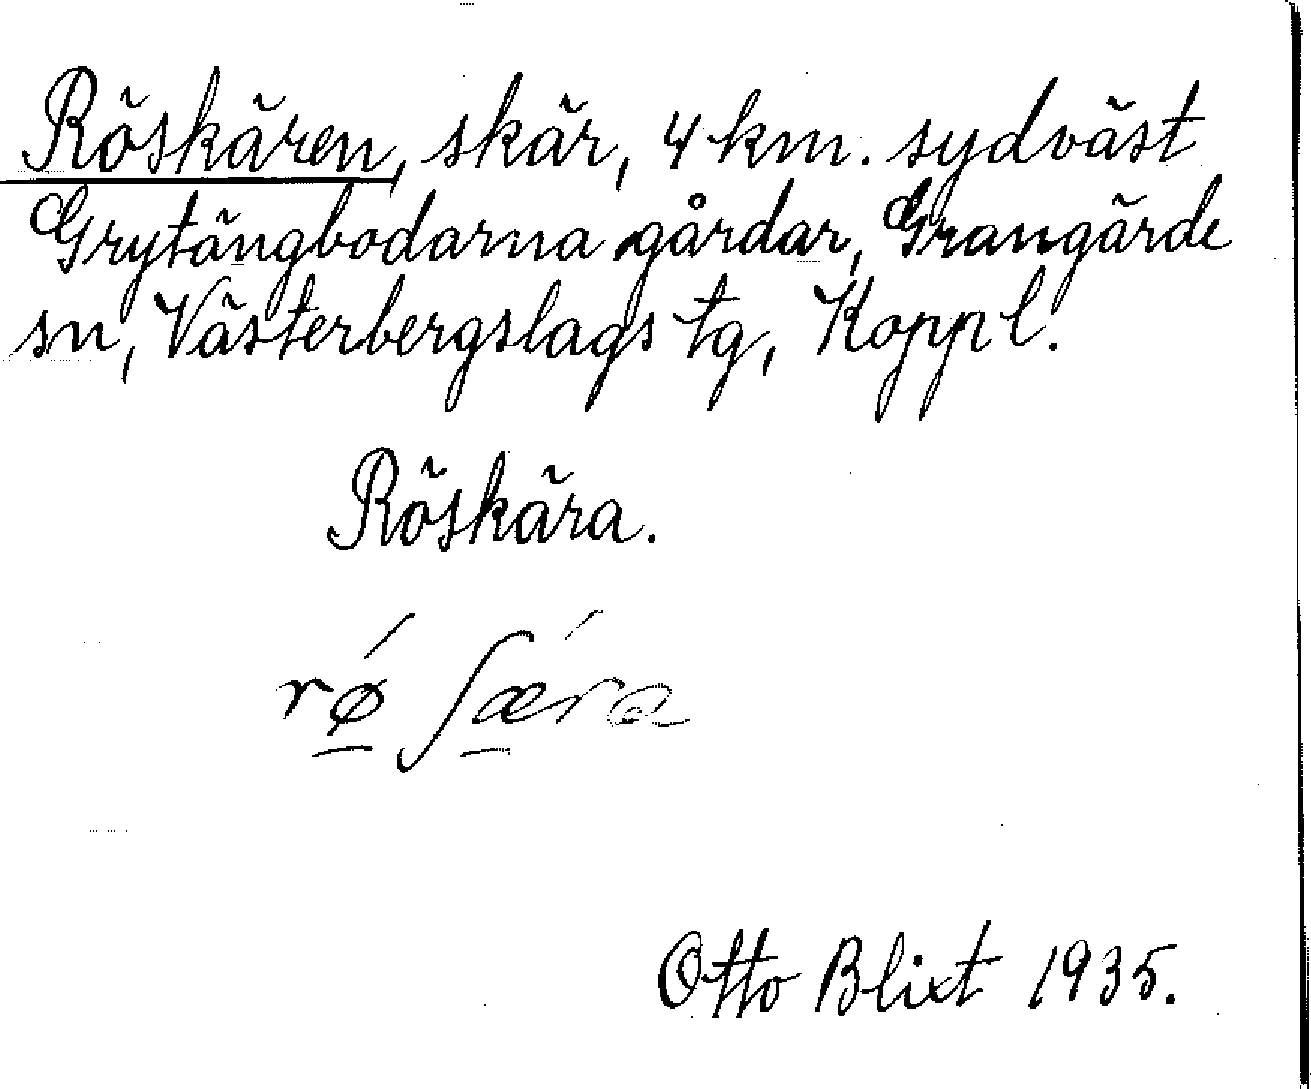 Röskären, skär, 4 km. sydväst
Grytängbodarna gårdar, Grangärde
sn, Västerbergslags tg, Koppl.
Röskära.
rǿ ʃǽra
Otto Blixt 1935.